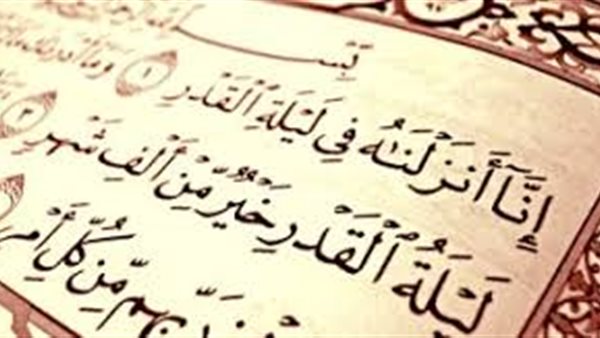 بِسْ
إِنَّآ أَنزَلْنَٰهُ فِى لَيْلَةِ ٱلْقَدْرِ ١ وَمَآ
لَيْلَةُ ٱلْقَدْرِ خَيْرٌ مِّنْ أَلْفِ شَهْرٍ ٣
رَبِّهِم مِّن كُلِّ أَمْرٍ